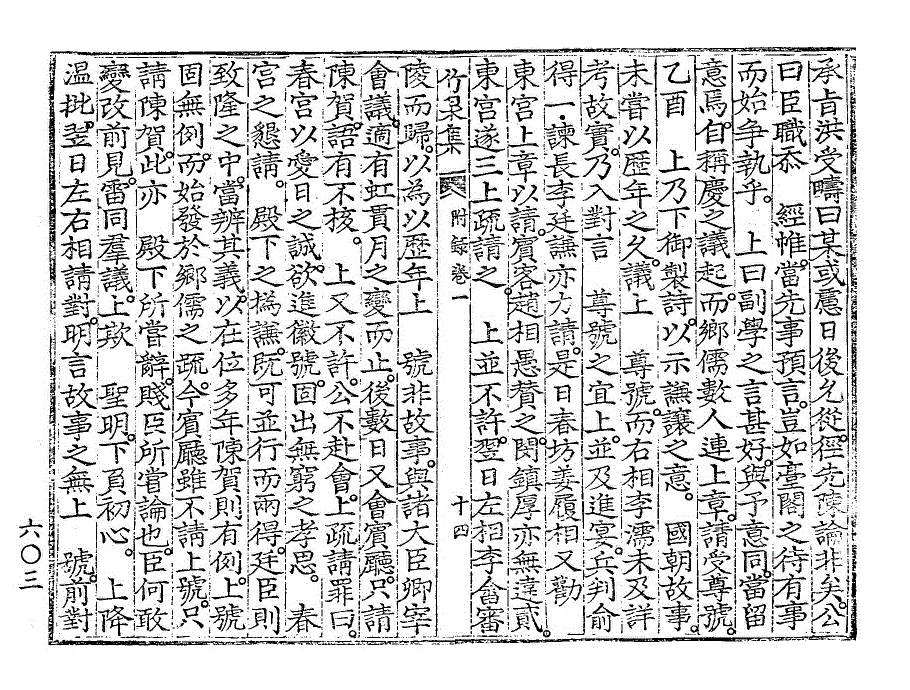 承旨洪受疇曰某或慮日後允從徑先陳論非矣公
曰臣職忝　經帷當先事預言豈如臺閣之待有事
而始爭執乎　上曰副學之言甚好與予意同當留
意焉自稱慶之議起而鄕儒數人連上章請受尊號
乙酉　上乃下御製詩以示謙讓之意　國朝故事
未嘗以歷年之久議上　尊號而右相李濡未及詳
考故實乃入對言　尊號之宜上並及進宴兵判俞
得一諫長李廷謙亦方請是日春坊姜履相又勸
東宮上章以請賓客趙相愚贊之閔鎭厚亦無違貳
東宮遂三上疏請之　上並不許翌日左相李畬審
竹泉集　附錄卷一　十四
陵而歸以爲以歷年上　號非故事與諸大臣卿宰
會議適有虹貫月之變而止後數日又會賓廳只請
陳賀語有不核　上又不許公不赴會上疏請罪曰
春宮以愛日之誠欲進徽號固出無窮之孝思　春
宮之懇請　殿下之撝謙旣可並行而兩得廷臣則
致隆之中當辨其義以在位多年陳賀則有例上號
固無例而始發於鄕儒之疏今賓廳雖不請上號只
請陳賀此亦　殿下所嘗辭賤臣所嘗論也臣何敢
變改前見雷同羣議上欺　聖明下負初心　上降
溫批翌日左右相請對明言故事之無上　號前對
六〇三